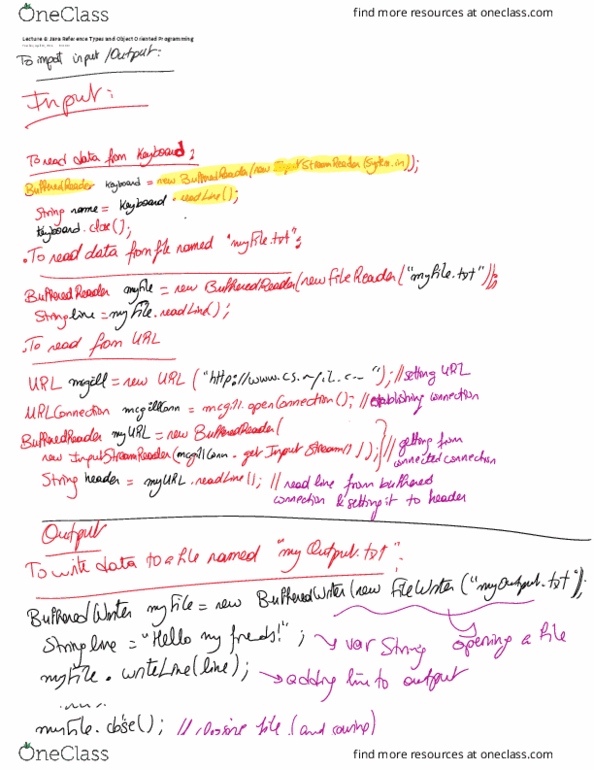 OneClass
find more resources at oneclass.com
Lecture 6: Java Reference Types and Object Oriented Programming
To import input/Output:
Input:
To read data from keyboard:
BufferedReader keyboard = new BufferedReader(new InputStreamReader(System.in));
String name = keyboard.readLine();
keyboard.close();
. To read data from file named "myfile.txt":
BufferedReader myfile = new BufferedReader(new FileReader("myfile.txt"));
String line = myfile.readLine();
. To read from URL
URL mcgill = new URL ("http://www.cs.~"); // setting URL
URLConnection mcgillConn = mcgill.openConnection(); // establishing connection
BufferedReader myURL = new BufferedReader(
new InputStreamReader(mcgillConn.getInputStream())); // getting from
connected connection
String header = myURL.readLine(); // read line from buffered
connection & setting it to header
Output
To write data to a file named "myOutput.txt":
BufferedWriter myFile = new BufferedWriter(new FileWriter("myOutput.txt"));
String line = "Hello my friends!"; → var String opening a file
myFile.writeLine(line); → adding line to output
......
myFile.close(); // closing file (and saving)
OneClass
find more resources at oneclass.com